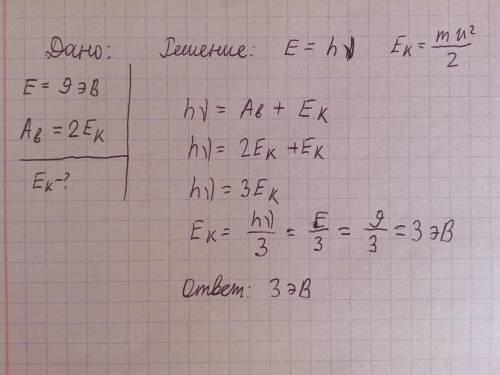 Дано:
E = 9 эВ
Aв = 2Eк
Eк-?
Решение: E = hν Eк = mu²/2
hν = Aв + Eк
hν = 2Eк + Eк
hν = 3Eк
Eк = hν/3 = E/3 = 9/3 = 3 эВ
Ответ: 3 эВ